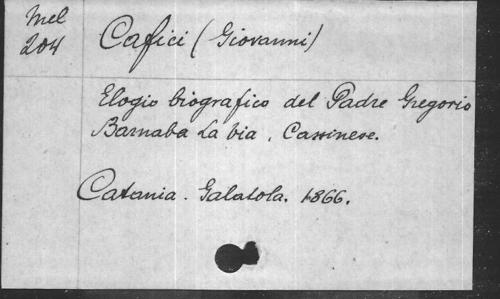 Mel
204
Cafici (Giovanni)
Elogio biografico del Padre Gregorio
Barnaba La via, Cassinese.
Catania. Galatola. 1866.